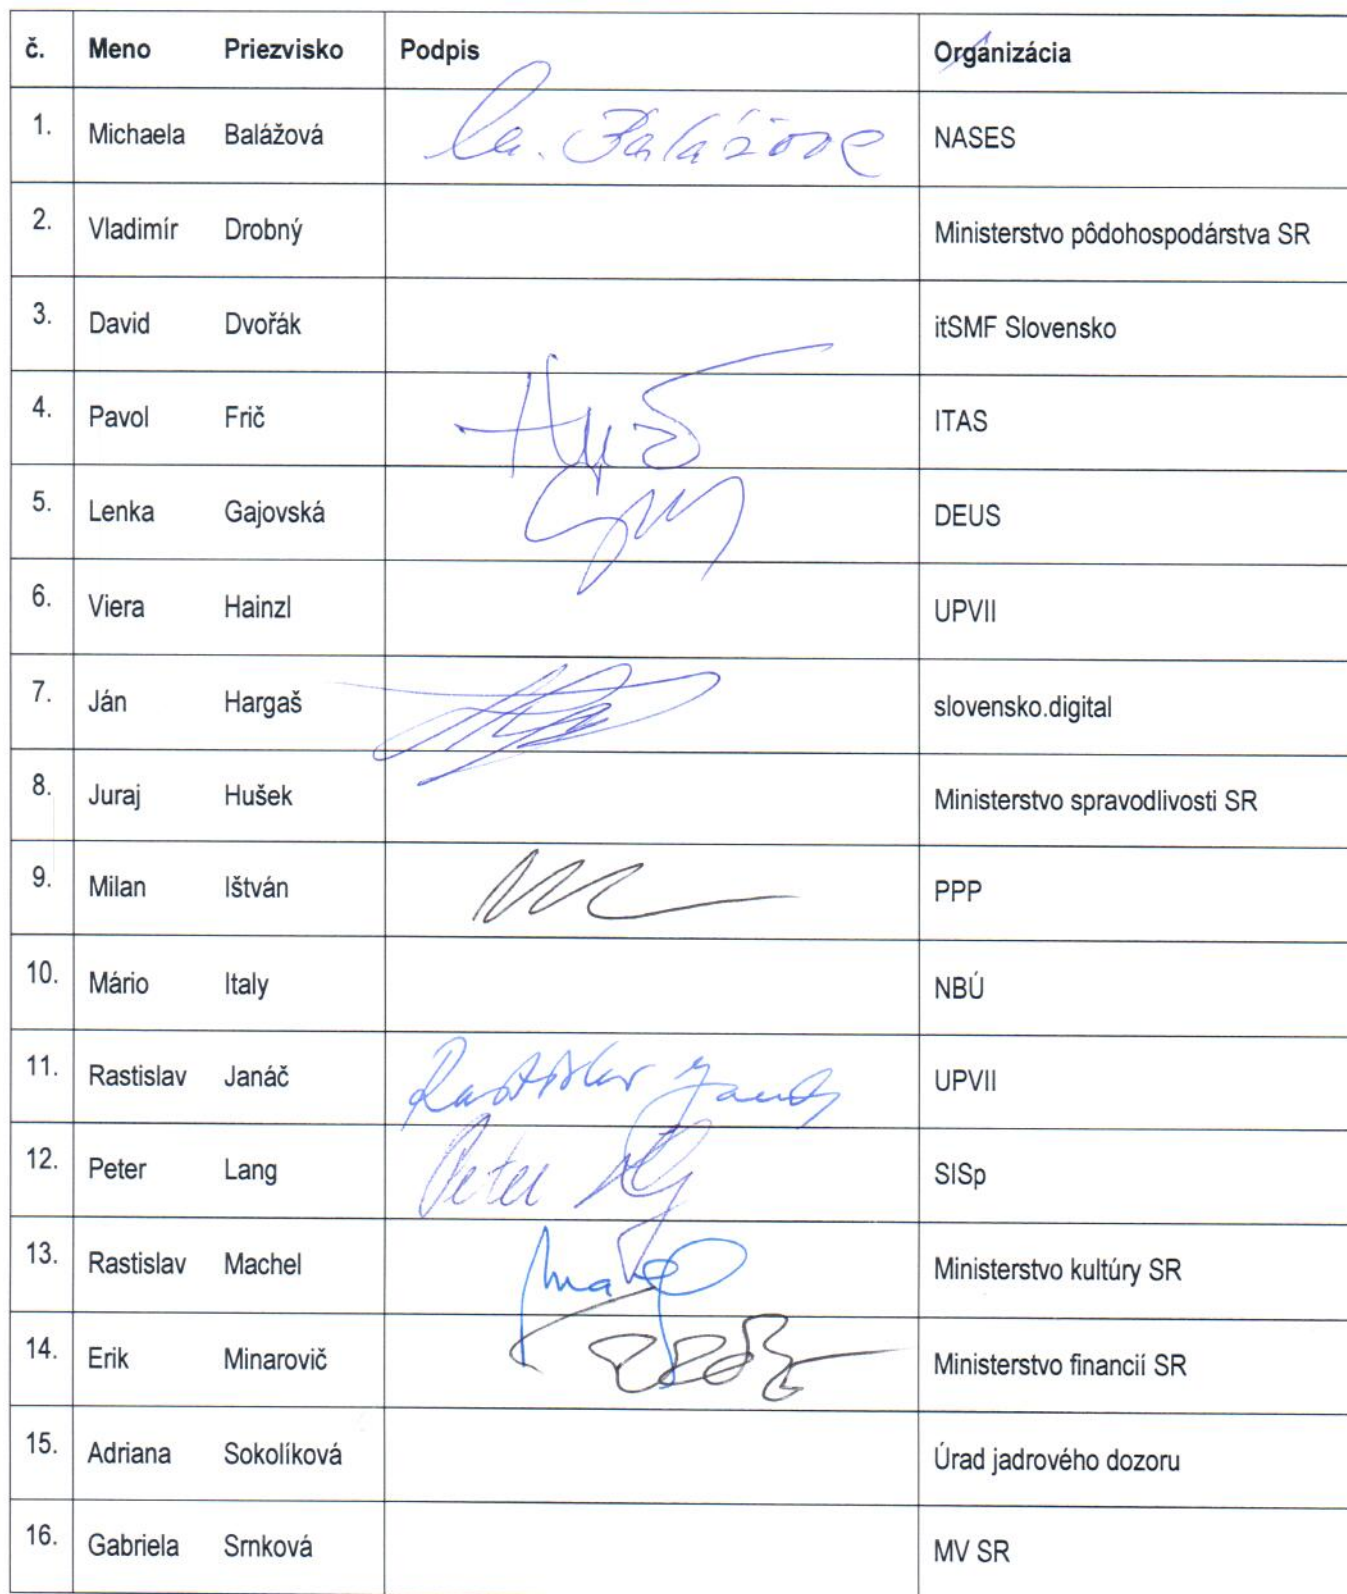 č. Meno Priezvisko Podpis Organizácia
1. Michaela Balážová M. Balážová NASES
2. Vladimír Drobný Ministerstvo pôdohospodárstva SR
3. David Dvořák itSMF Slovensko
4. Pavol Frič ITAS
5. Lenka Gajovská DEUS
6. Viera Hainzl UPVII
7. Ján Hargaš slovensko.digital
8. Juraj Hušek Ministerstvo spravodlivosti SR
9. Milan Ištván PPP
10. Mário Italy NBÚ
11. Rastislav Janáč Rastislav Janáč UPVII
12. Peter Lang Peter SISp
13. Rastislav Machel Ministerstvo kultúry SR
14. Erik Minarovič Ministerstvo financií SR
15. Adriana Sokolíková Úrad jadrového dozoru
16. Gabriela Srnková MV SR